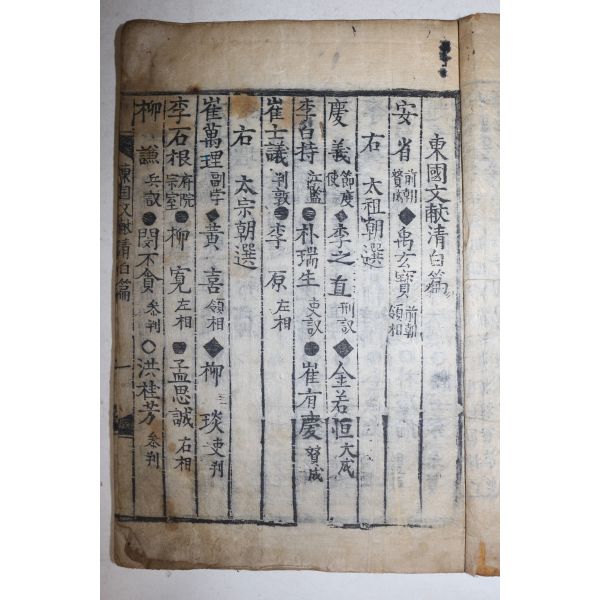 東國文献清白篇
安省前朝贊成 禹玄寶前朝領相
右 太祖朝選
慶義節度使 李之直刑議 金若恒大成
李百持監 朴瑞生吏議 崔有慶贊成
崔士議判敦 李原左相
右 太宗朝選
崔萬理副学 黃喜領相 柳琰吏判
李石根府院宗室 柳寬左相 孟思誠右相
柳謙兵議 閔不貪參判 洪桂芳參判
東國文献清白篇 一